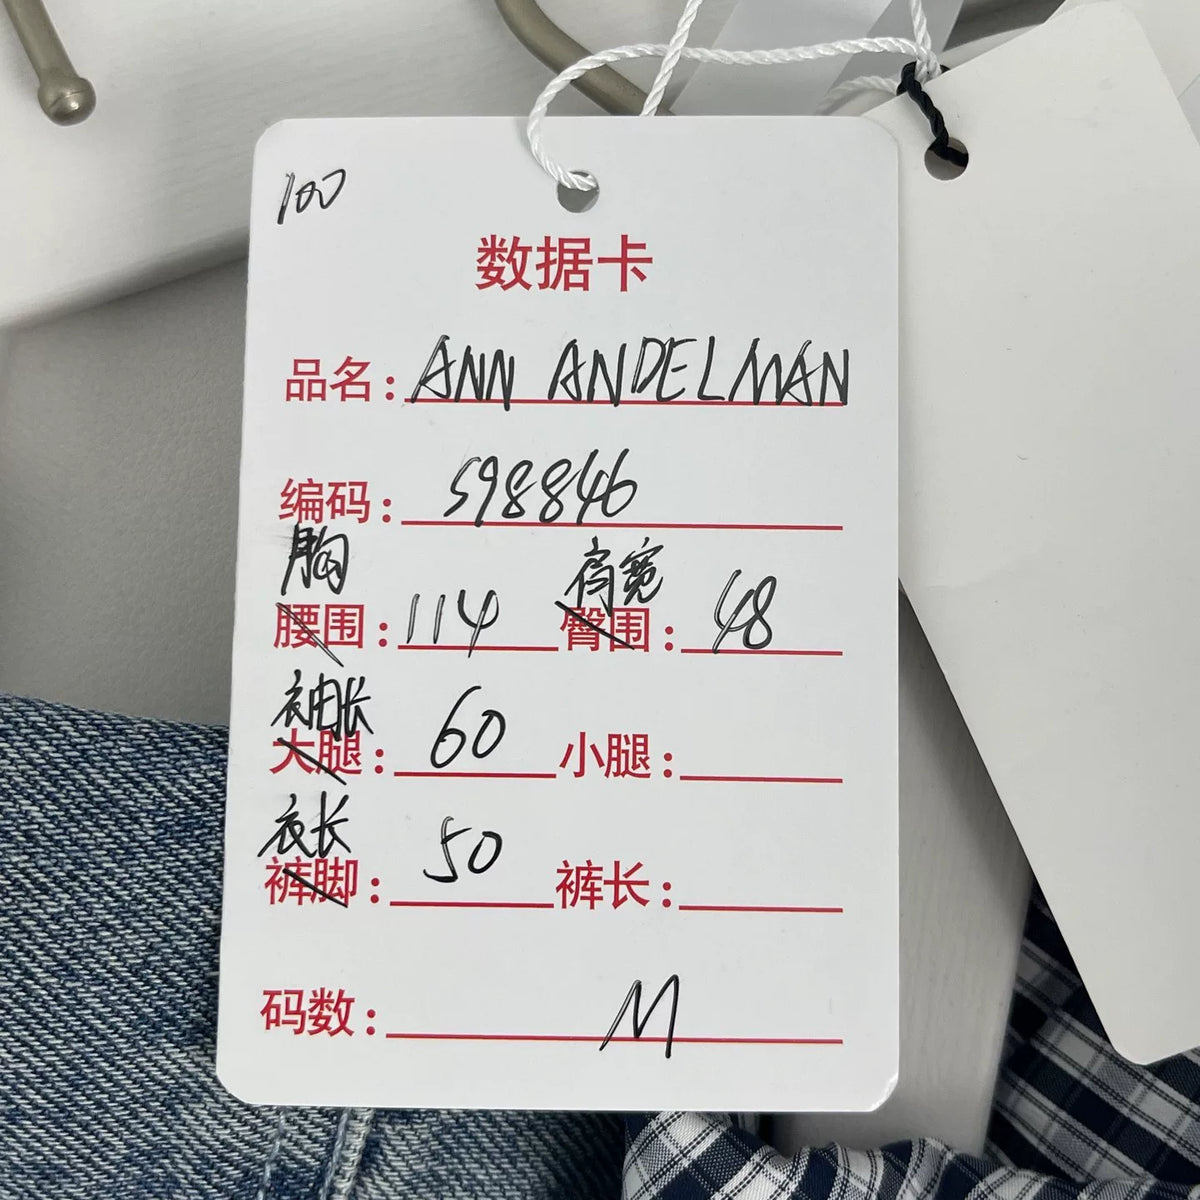 100
数据卡
品名: ANN ANDELMAN
编码: 598846
胸 肩宽
腰围: 114 臀围: 48
袖长
大腿: 60 小腿:
衣长
裤脚: 50 裤长:
码数: M